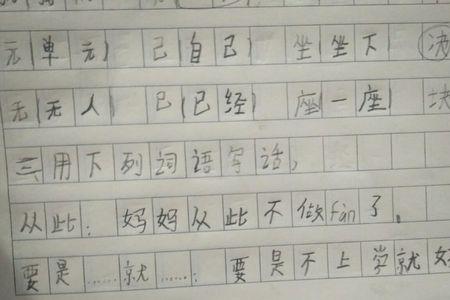 元(单元) 己(自己) 坐(坐下) (决
无(无人) 已(已经) 座(一座) 块
三用下列词语写话,
从此:妈妈从此不做fàn了。
要是……就……:要是不上学就好